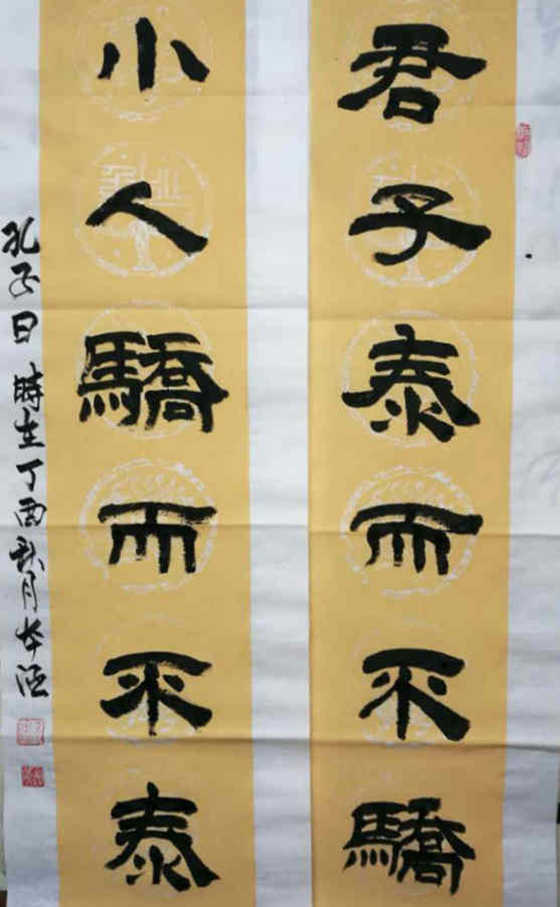 君子泰而不驕
小人驕而不泰
孔子曰 時在丁酉秋月